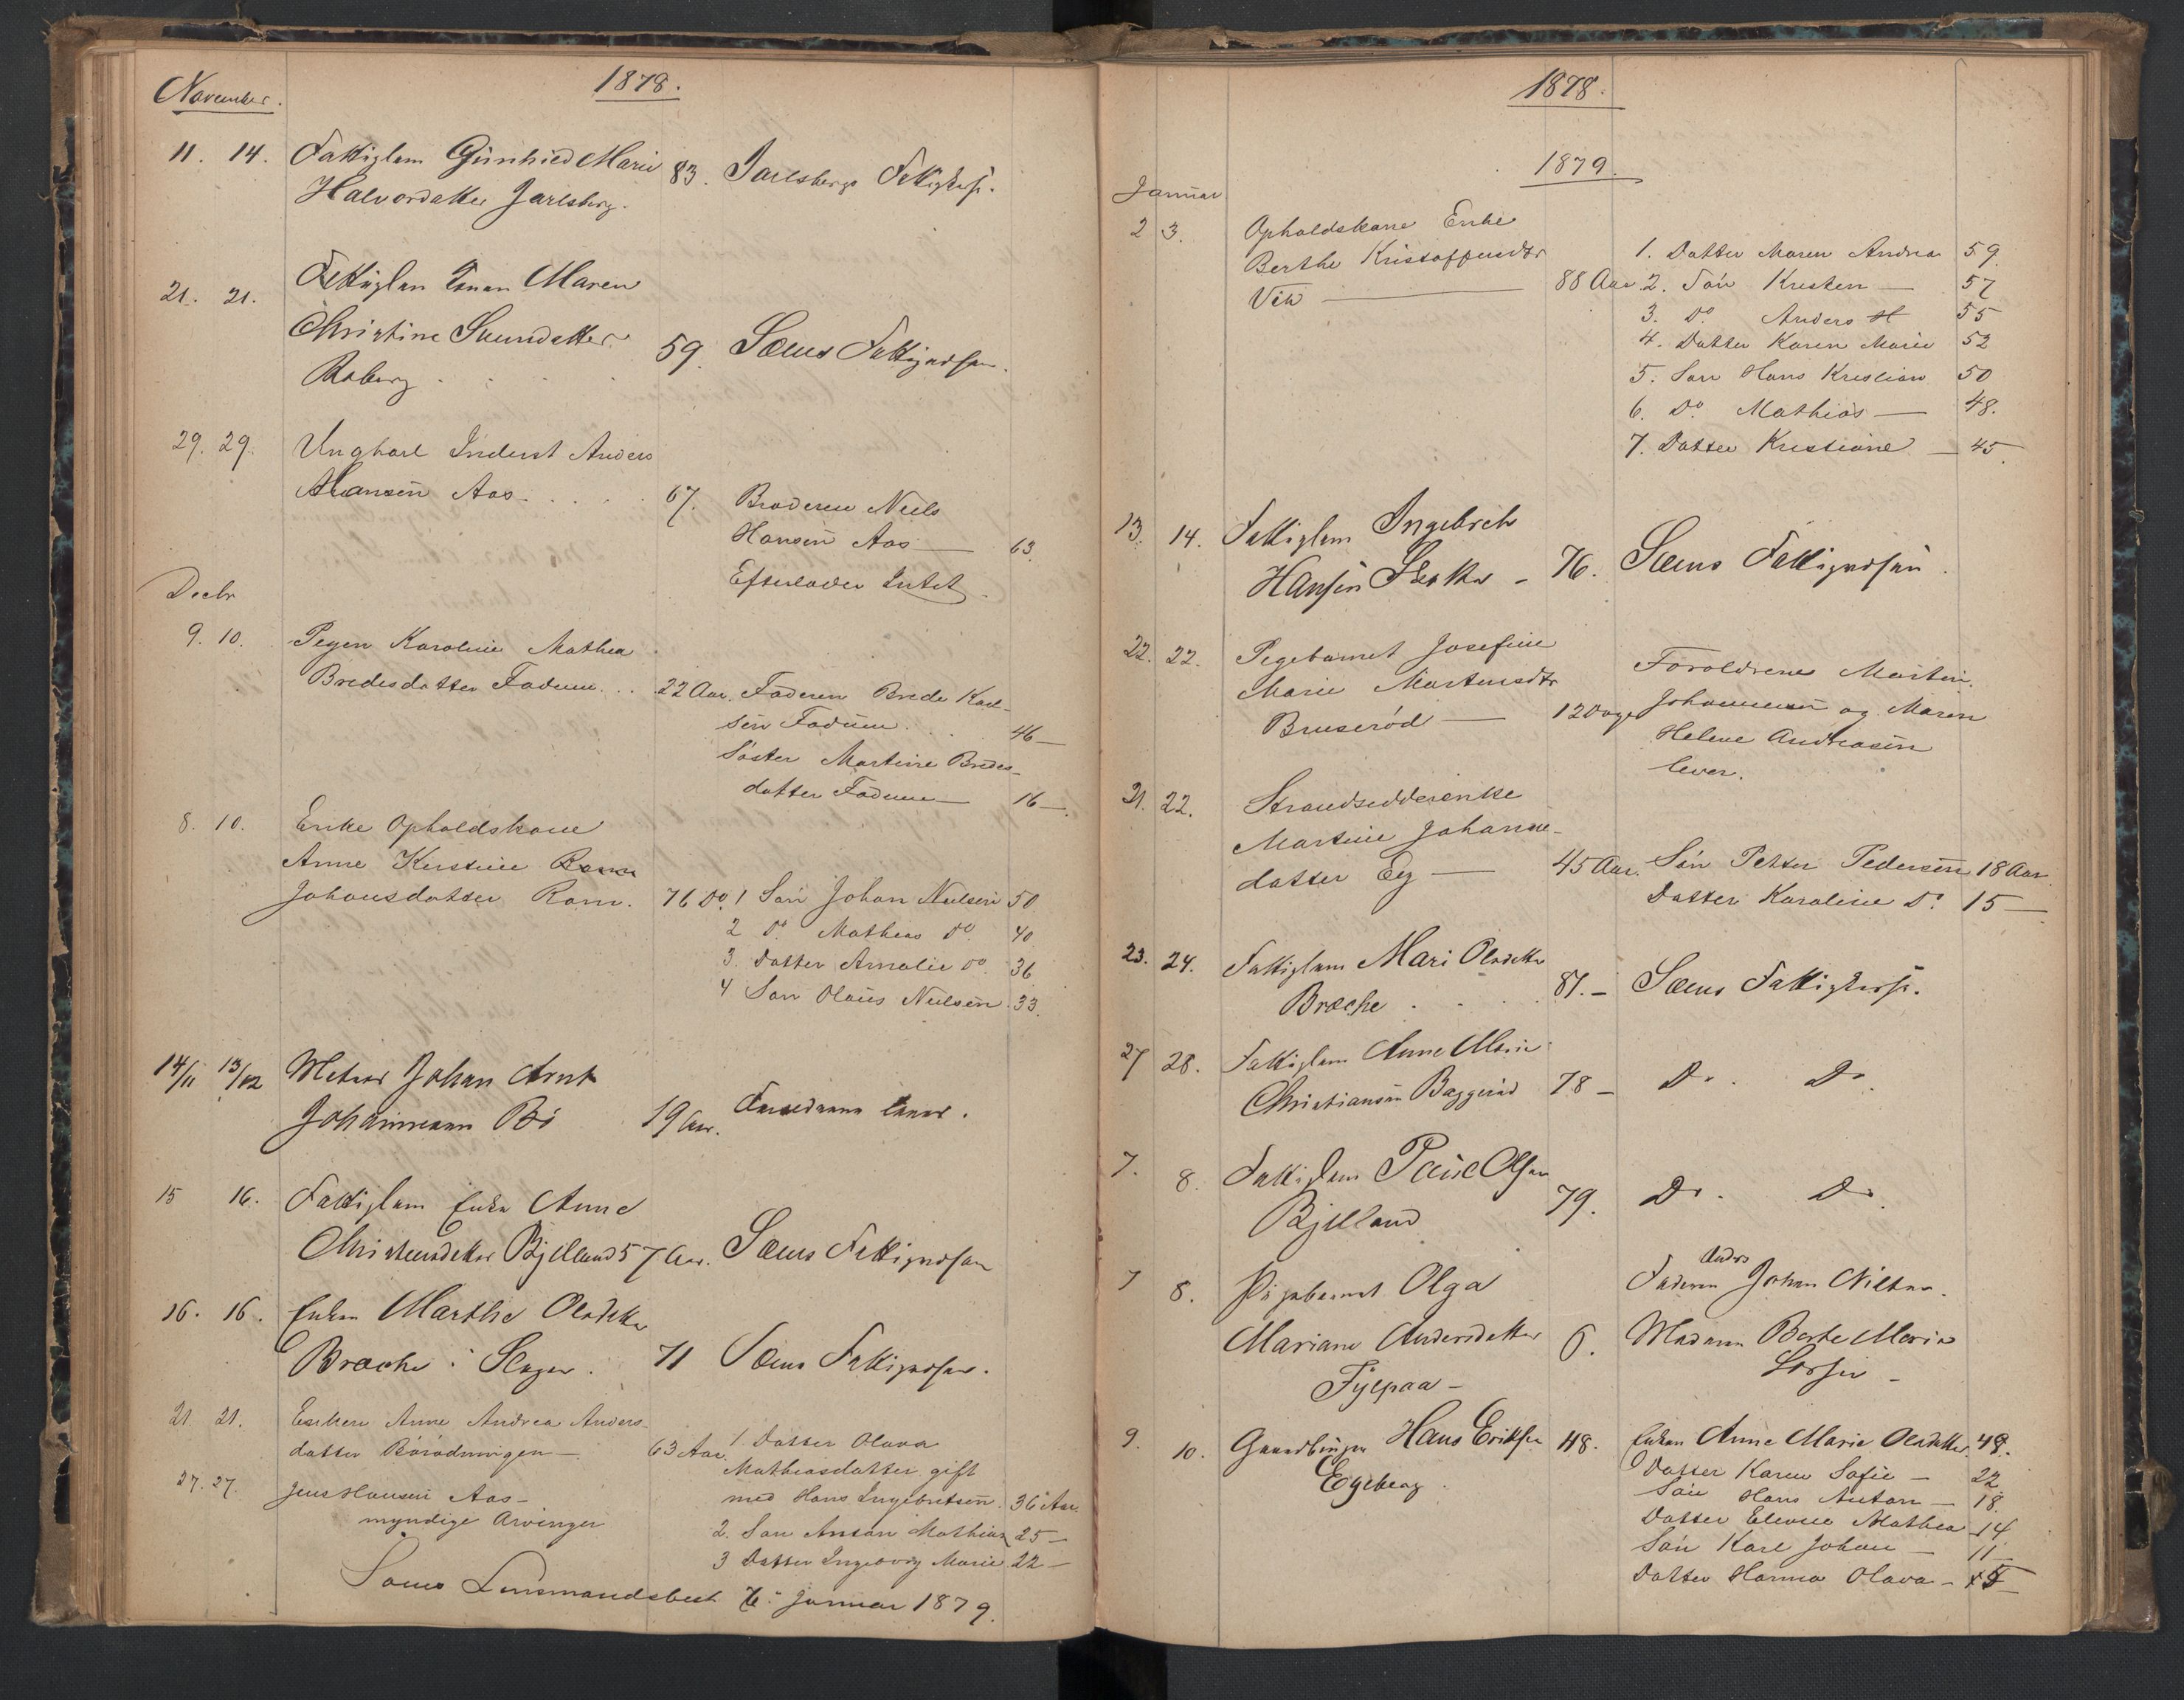 November.
1878.
11. 14. Fattiglem Gunhild Marie
Halvordatter Jarlsberg. 83. Jarlsbergs
21. 21. Fattiglem Enken Maren
Christine
Roberg 59. Sems Fattigvæsen.
29. 29. Ungkarl Inderst Anders
Hansen Aas 67. Broderen Niels
Hansen Aas — 63.
Efterlader Intet.
Decbr
9. 10. Pigen Karoline Mathea
Bredesdatter Fadum... 22 Aar. Faderen Brede Karl-
sen Fadum.... 46 —
Søster Martine Bredes-
datter Fadum — 16 —
8. 10. Enke Opholdskone
Anne Kerstine
Johansdatter Ram. 76 Do. 1 Søn Johan Nielsen 50
2 Do. Mathias Do. 40
3. Datter Amalie Do. 36
4 Søn Olaus Nielsen. 33.
14/11 13/12 Matros Johan Arnt
Johannesen Bø 19 Aar.
15 16. Fattiglem Enke Anne
Christensdatter Bjelland 57 Aar. Sems Fattigvæsen
16. 16. Enken Marthe Olsdatter
Bræche i Slagen. 71 Sems Fattigvæsen.
21. 21. Enken Anne Andrea Anders-
datter — 63 Aar. 1 Datter Olava
Mathiasdatter gift
med Hans Ingebretsen. 36 Aar
27. 27. Jens Hansen Aas —
myndige Arvinger
2. Søn Anton Mathias 25 —
3 Datter Ingeborg Marie 22 —
Sems Lensmandsbest. 7. Januar 1879.
1878.
1879.
Januar
2 3. Opholdskone Enke
Berthe Kristoffersdtr
Vik — 88 Aar.
1. Datter Maren Andrea 59.
2. Søn Kristen — 57
3. Do. Anders H 55
4. Datter Karen Marie 52
5. Søn Hans Kristian 50
6. Do. Mathias — 48.
7. Datter Kristiane — 45.
13. 14. Fattiglem Ingebret
Hansen — 76. Sems Fattigvæsen.
22. 22. Pigebarnet Josefine
Marie Martinsdtr
Bruserød — 12 Dage
Forældrene Martin
Johannesen og Maren
Helene Andreasen
lever.
21. 22. Strandsidderenke
Martine Johanne-
datter Eg — 45 Aar. Søn Petter Pedersen 18 Aar.
Datter Karoline Do. 15 —
23. 24. Fattiglem Mari Olsdatter
Bræche 81. — Sems
27 28. Fattiglem Anne Marie
Christiansen Baggerød 78 — Do. Do.
7. 8. Fattiglem Paul Olsen
Bjelland 79. Do. Do.
7 8. Pigebarnet Olga
Mariane Andersdatter 6.
Fylpaa —
Anders
Faderen Johan Nilsen.
Moderen Berte Marie
9. 10. Gaardbruger Hans Eriksen 48.
Egeberg.
Enken Anne Marie Olsdatter 48.
Datter Karen Sofie — 22
Søn Hans Anton — 18.
Datter Elevine Mathea — 14
Søn Karl Johan — 11 —
Datter Hanna Olava — 5